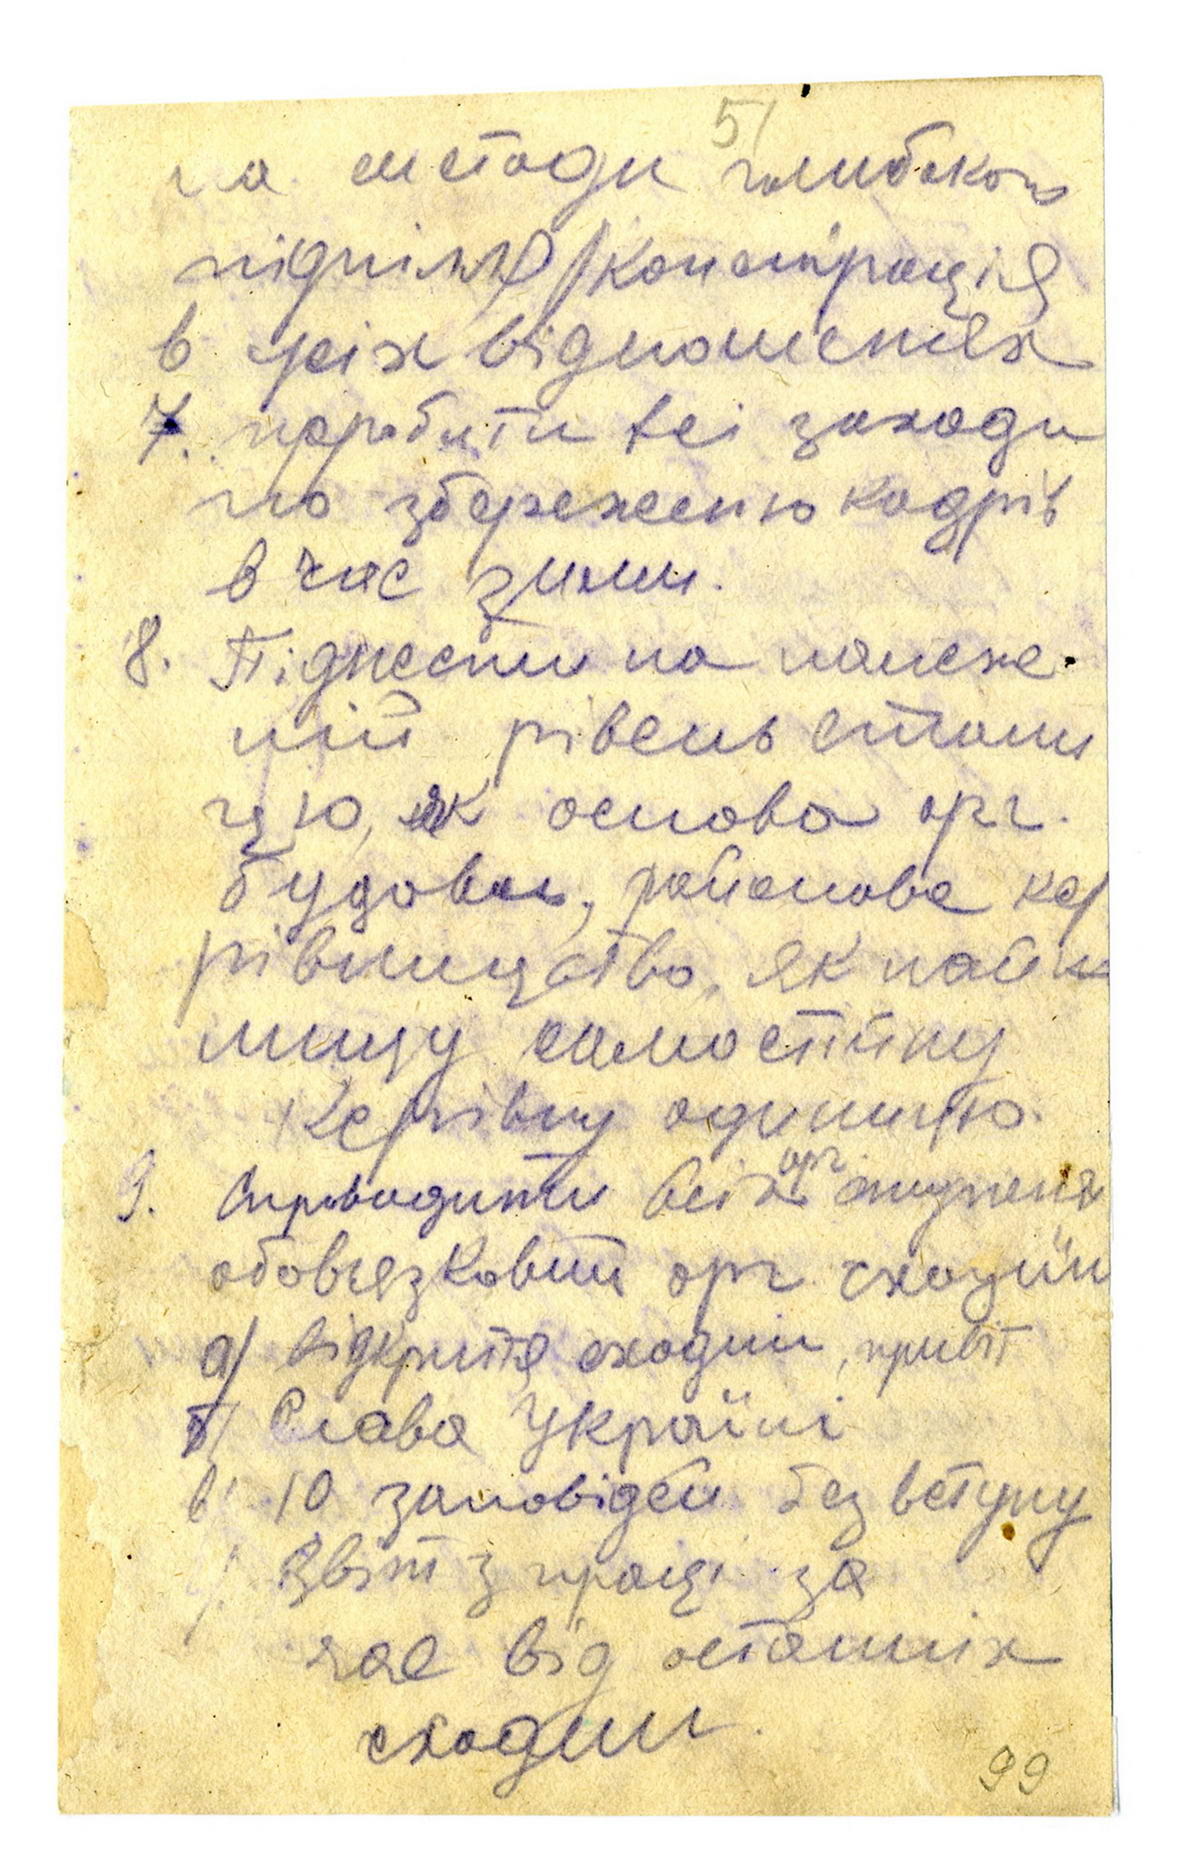 5/
на методи глибоког
підпілля /конспірація
в усіх відношеннях
7. проробити всі заходи
по збереженю кадрів
в час зими.
8. Піднести на належ-
ний рівень стани
цю, як основа орг.
будови, районове ке
рівництво, як най н
мищу самостійну
керівну одиницю.
9. Впровадити всіх орг
обовязковий орг. сходин
а/ відкриття сходин, привіт
б/ Слава Україні
в/ 10 заповідей без вступу
Звіт з праці за
час від останніх
сходин.
99